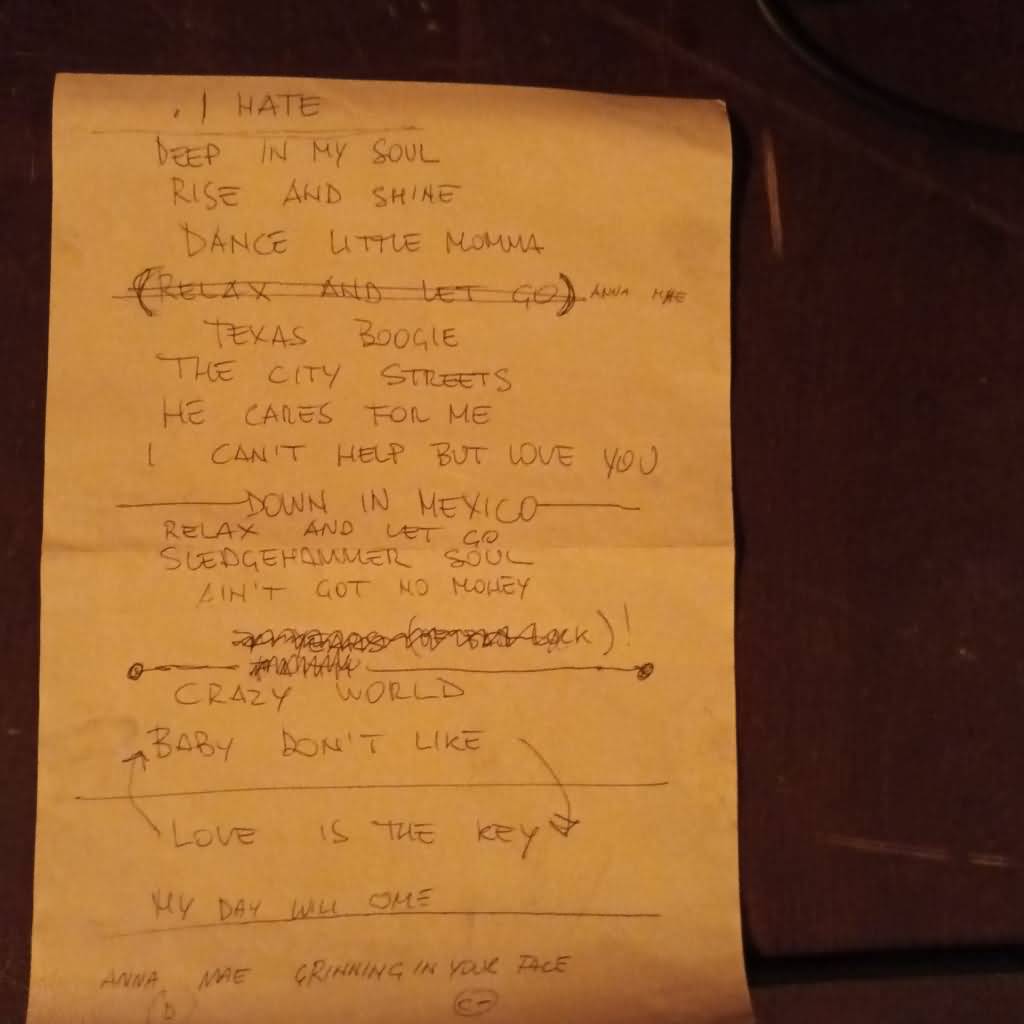 . I HATE
DEEP IN MY SOUL
RISE AND SHINE
DANCE LITTLE MOMMA
(RELAX AND LET GO) ANNA MAE
TEXAS BOOGIE
THE CITY STREETS
HE CARES FOR ME
I CAN'T HELP BUT LOVE YOU
DOWN IN MEXICO
RELAX AND LET GO
SLEDGEHAMMER SOUL
AIN'T GOT NO MONEY
CRAZY WORLD
BABY DON'T LIKE
LOVE IS THE KEY
MY DAY WILL COME
ANNA MAE GRINNING IN YOUR FACE
D C-